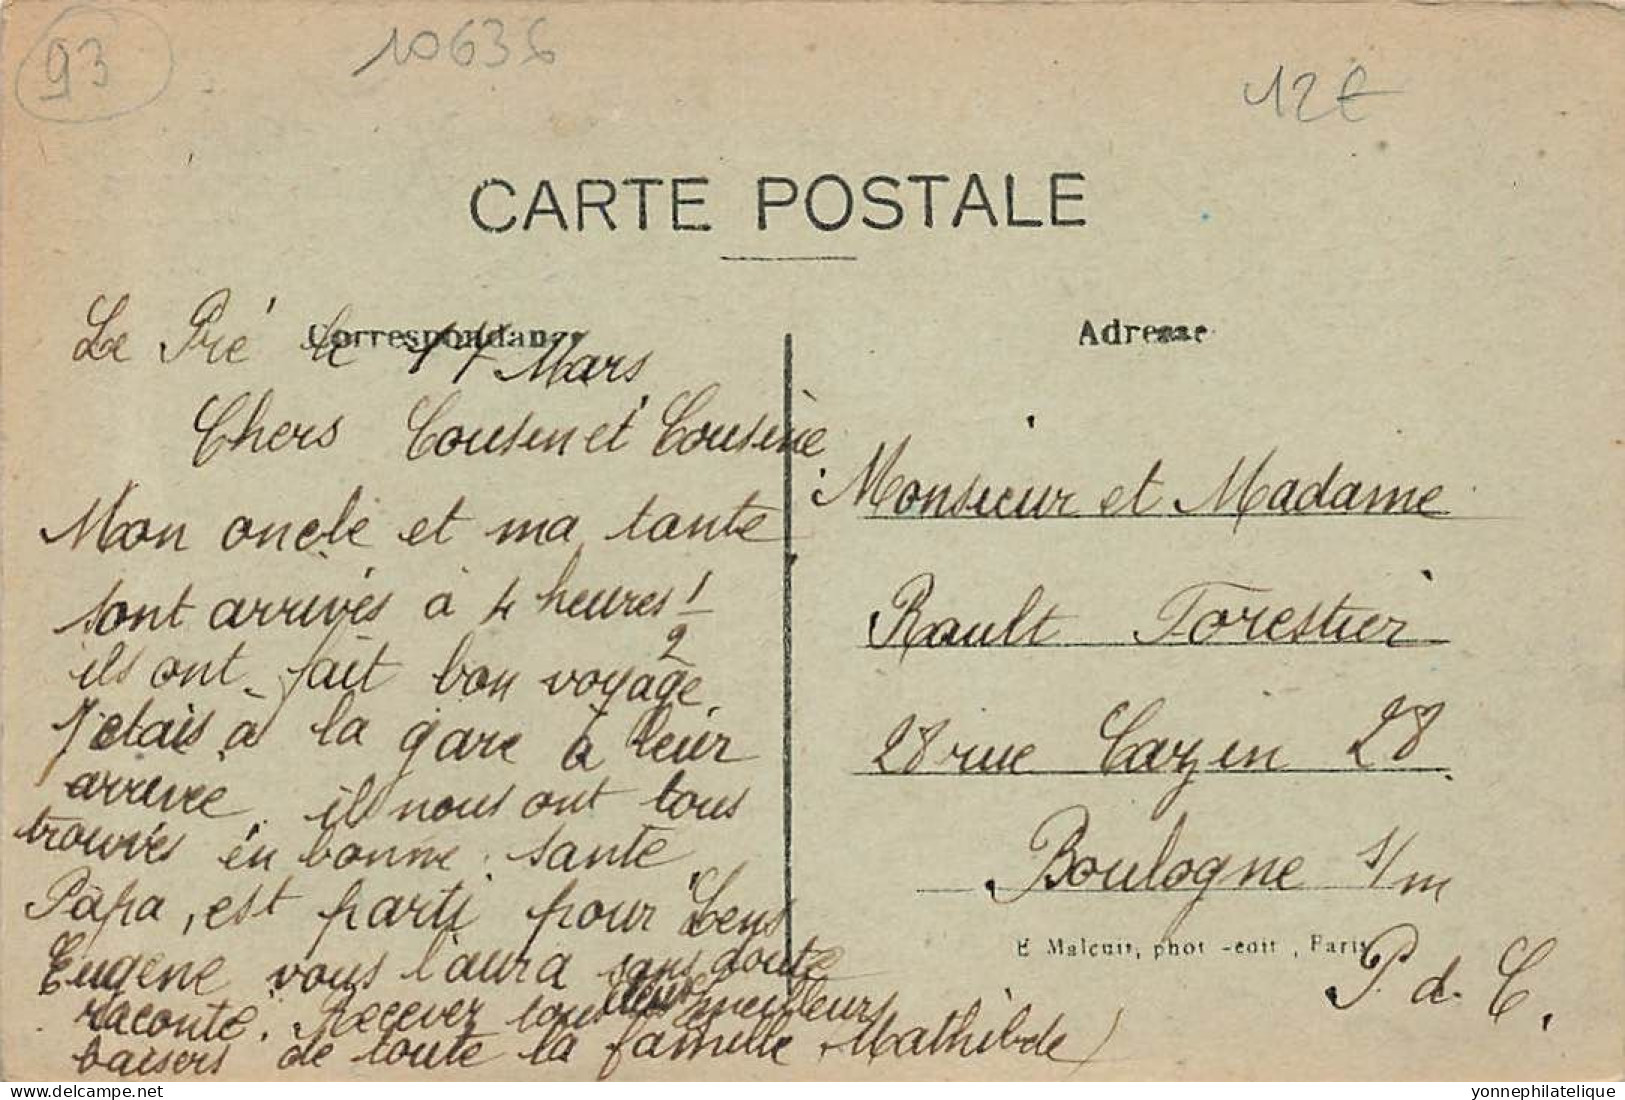 93
10636
12€
CARTE POSTALE
Correspondance
Adresse
Le Pré le 17 Mars
Chers Cousin et Cousine
Mon oncle et ma tante
sont arrivés à 4 heures !
ils ont fait bon voyage
J'etais à la gare à leur
arrivée il nous ont tous
trouvés en bonne santé
Papa, est parti pour Lens
Eugene vous l'aura sans doute
raconté. Recever tous meilleurs
baisers de toute la famille Mathilde
Monsieur et Madame
Rault Forestier
28 rue Cazin 28
Boulogne s/m
E Malcuit, phot -edit , Paris
P. d. C.
yonnephilatelique